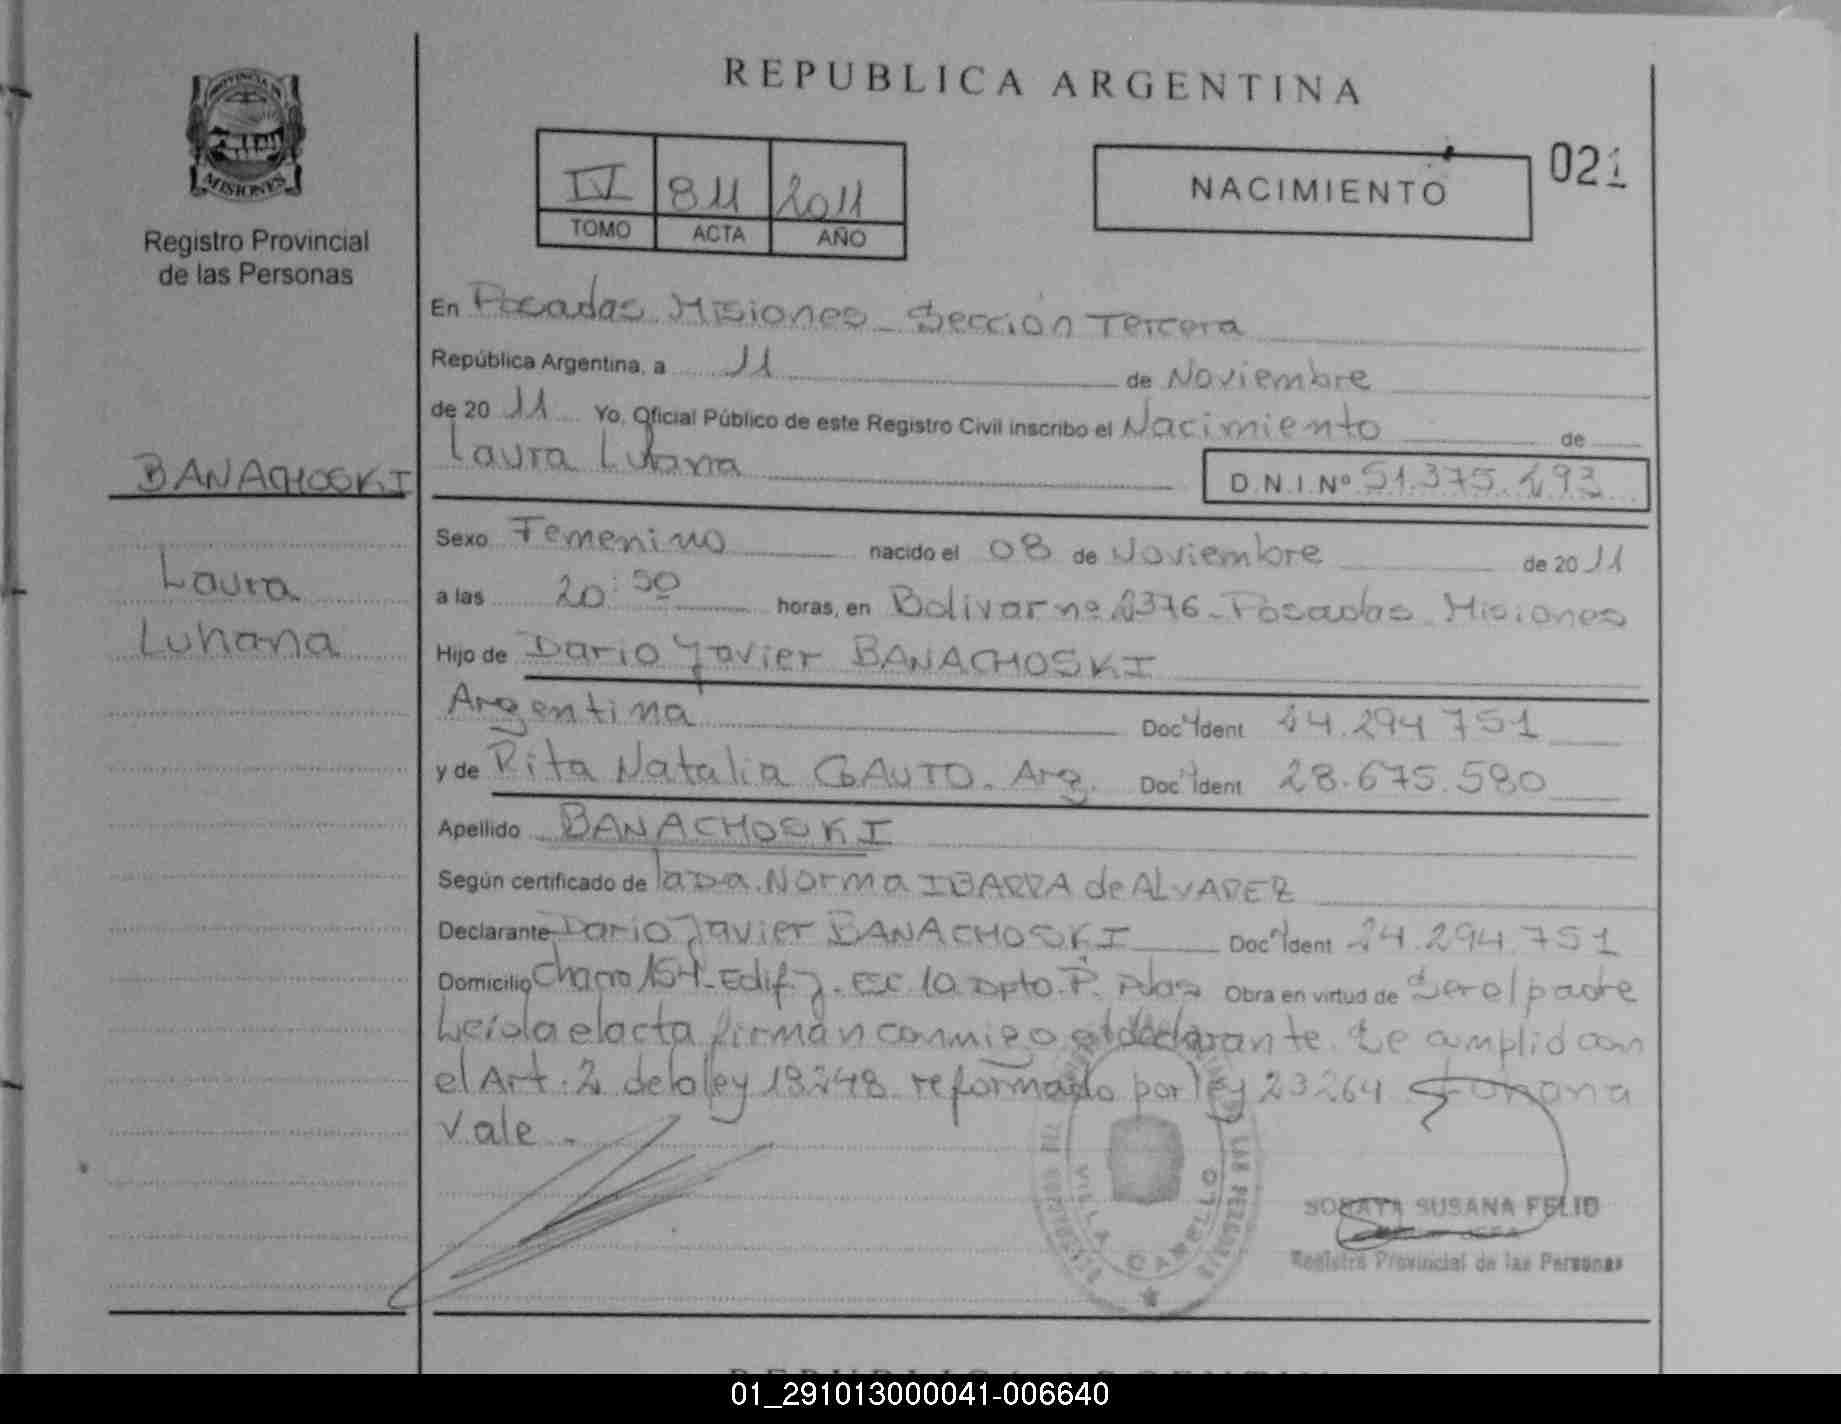 REPUBLICA ARGENTINA
PROVINCIA DE
MISIONES
Registro Provincial
de las Personas
IV 811 2011
TOMO ACTA AÑO
NACIMIENTO
021
En Posadas Misiones - Sección Tercera
República Argentina, a 11 de Noviembre
de 20 11 Yo, Oficial Público de este Registro Civil inscribo el Nacimiento de
Laura Luhana
D.N.I.Nº 51.375.293
BANACHOSKI
Laura
Luhana
Sexo Femenino nacido el 08 de Noviembre de 20 11
a las 20:50 horas, en Bolivar nº 2376 - Posadas - Misiones
Hijo de Dario Javier BANACHOSKI
Argentina Doc Ident 24.294.751
y de Rita Natalia GAUTO. Arg. Doc Ident 28.675.580
Apellido BANACHOSKI
Según certificado de la Dra. Norma IBARRA de ALVAREZ
Declarante Dario Javier BANACHOSKI Doc Ident 24.294.751
Domicilio Chacra 154 - Edif. J. Esc 10. Dpto. P. Pdas Obra en virtud de Ser el padre
Leída el acta firman conmigo el declarante. Se cumplió con
el Art. 2 de la ley 18248 reformado por ley 23264 Luhana
Vale.
VILLA CABELLO
SORAYA SUSANA FELIP
JEFA
Registro Provincial de las Personas
REPUBLICA ARGENTINA
01_291013000041-006640